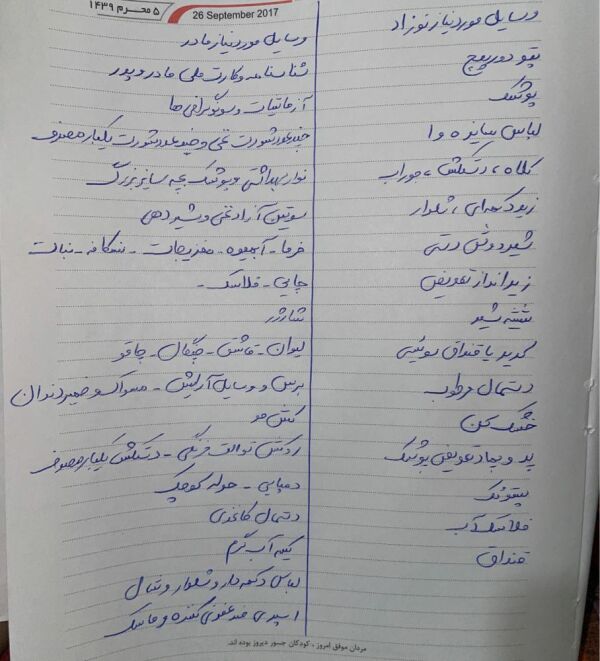 ۵ محرم ۱۴۳۹
26 September 2017
وسایل مورد نیاز نوزاد
پتو دورپیچ
پوشک
لباس سایز ۰ و ۱
کلاه، دستکش، جوراب
زیردکمه‌ای، شلوار
شیردوش دستی
زیرانداز تعویض
شیشه شیر
کریر یا قنداق سوئیسی
دستمال مرطوب
خشک کن
پد و پماد تعویض پوشک
پتو
فلاسک آب
قنداق
وسایل مورد نیاز مادر
شناسنامه و کارت ملی مادر و پدر
آزمایشات و سونوگرافی ها
چند عدد شورت نخی و چند عدد شورت یکبار مصرف
نوار بهداشتی و پوشک بچه سایز بزرگ
سوتین آزاد نخی و شیردهی
خرما - آبمیوه - مغزیجات - نسکافه - نبات
چایی - فلاسک -
شارژر
لیوان - قاشق - چنگال - چاقو
برس و وسایل آرایش - مسواک و خمیردندان
کش مو
روکش توالت فرنگی - دستکش یکبار مصرف
دمپایی - حوله کوچک
دستمال کاغذی
کیسه آب گرم
لباس دکمه دار و شلوار و شال
اسپری ضدعفونی کننده و ماسک
مردان موفق امروز، کودکان جسور دیروز بوده اند.